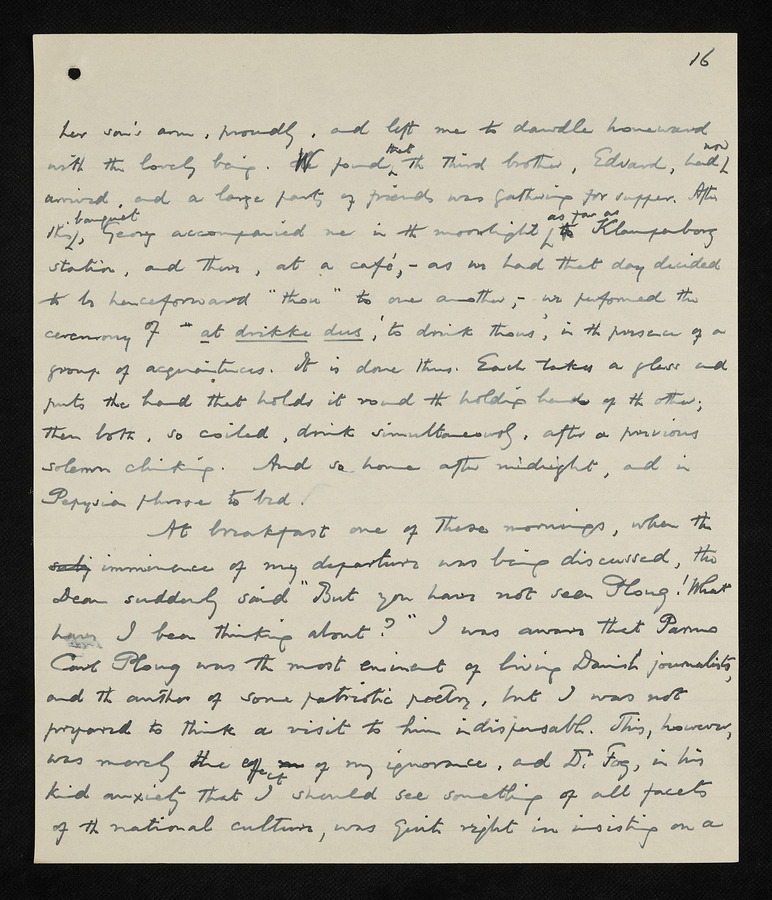 16
her son's arm, proudly, and left me to dawdle homeward
with the lovely being. We found that the third brother, Edvard, had now
arrived, and a large party of friends was gathering for supper. After
this banquet, Georg accompanied me in the moonlight as far as Klampenborg
station, and there, at a café, – as we had that day decided
to be henceforward "thou" to one another, – we performed the
ceremony of "at drikke dus", 'to drink thous', in the presence of a
group of acquaintances. It is done thus. Each takes a glass and
puts the hand that holds it round the holding hand of the other;
then both, so coiled, drink simultaneously, after a previous
solemn clinking. And so home after midnight, and in
Pepysian phrase to bed.
At breakfast one of these mornings, when the
imminence of my departure was being discussed, the
Dean suddenly said "But you have not seen Ploug! What
have I been thinking about?" I was aware that Parmo
Carl Ploug was the most eminent of living Danish journalists,
and the author of some patriotic poetry, but I was not
prepared to think a visit to him indispensable. This, however,
was merely the effect of my ignorance, and Dr. Fog, in his
kind anxiety that I should see something of all facets
of the national culture, was quite right in insisting on a